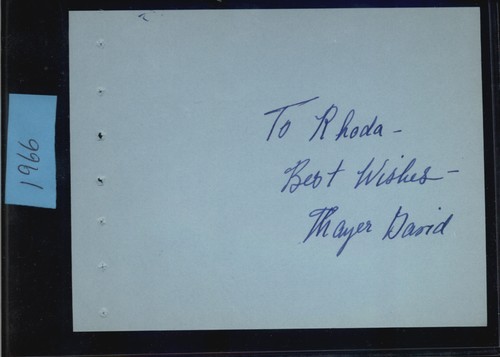 1966
To Rhoda -
Best Wishes -
Thayer David